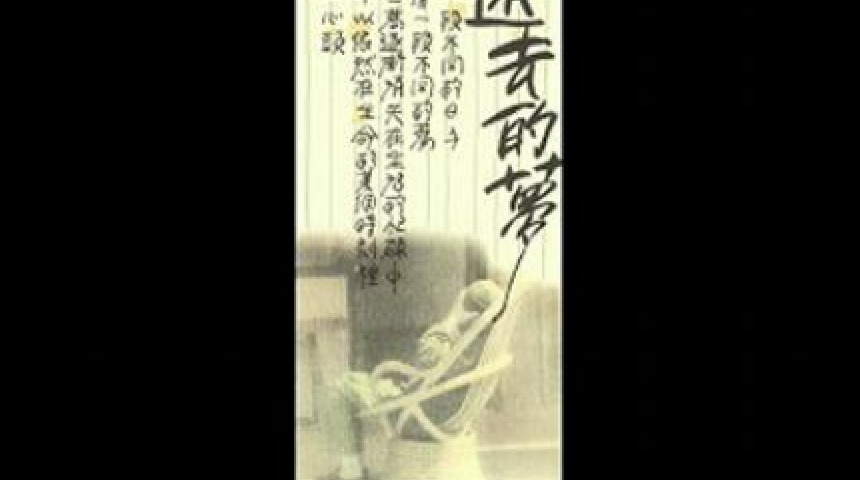 逝去的夢
段不同的日子
一段不同的夢
夢逐漸消失在生活的忙碌中
以依然在生命的某個時刻裡
心頭